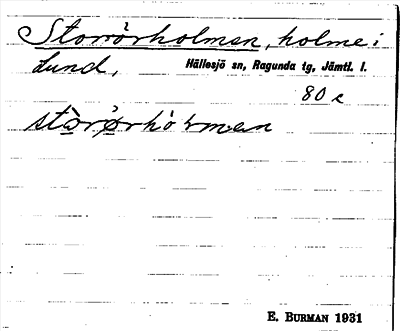 Storrörholmen, holme i
Lund, Hällesjö sn, Ragunda tg, Jämtl. l.
80 c
E. BURMAN 1931